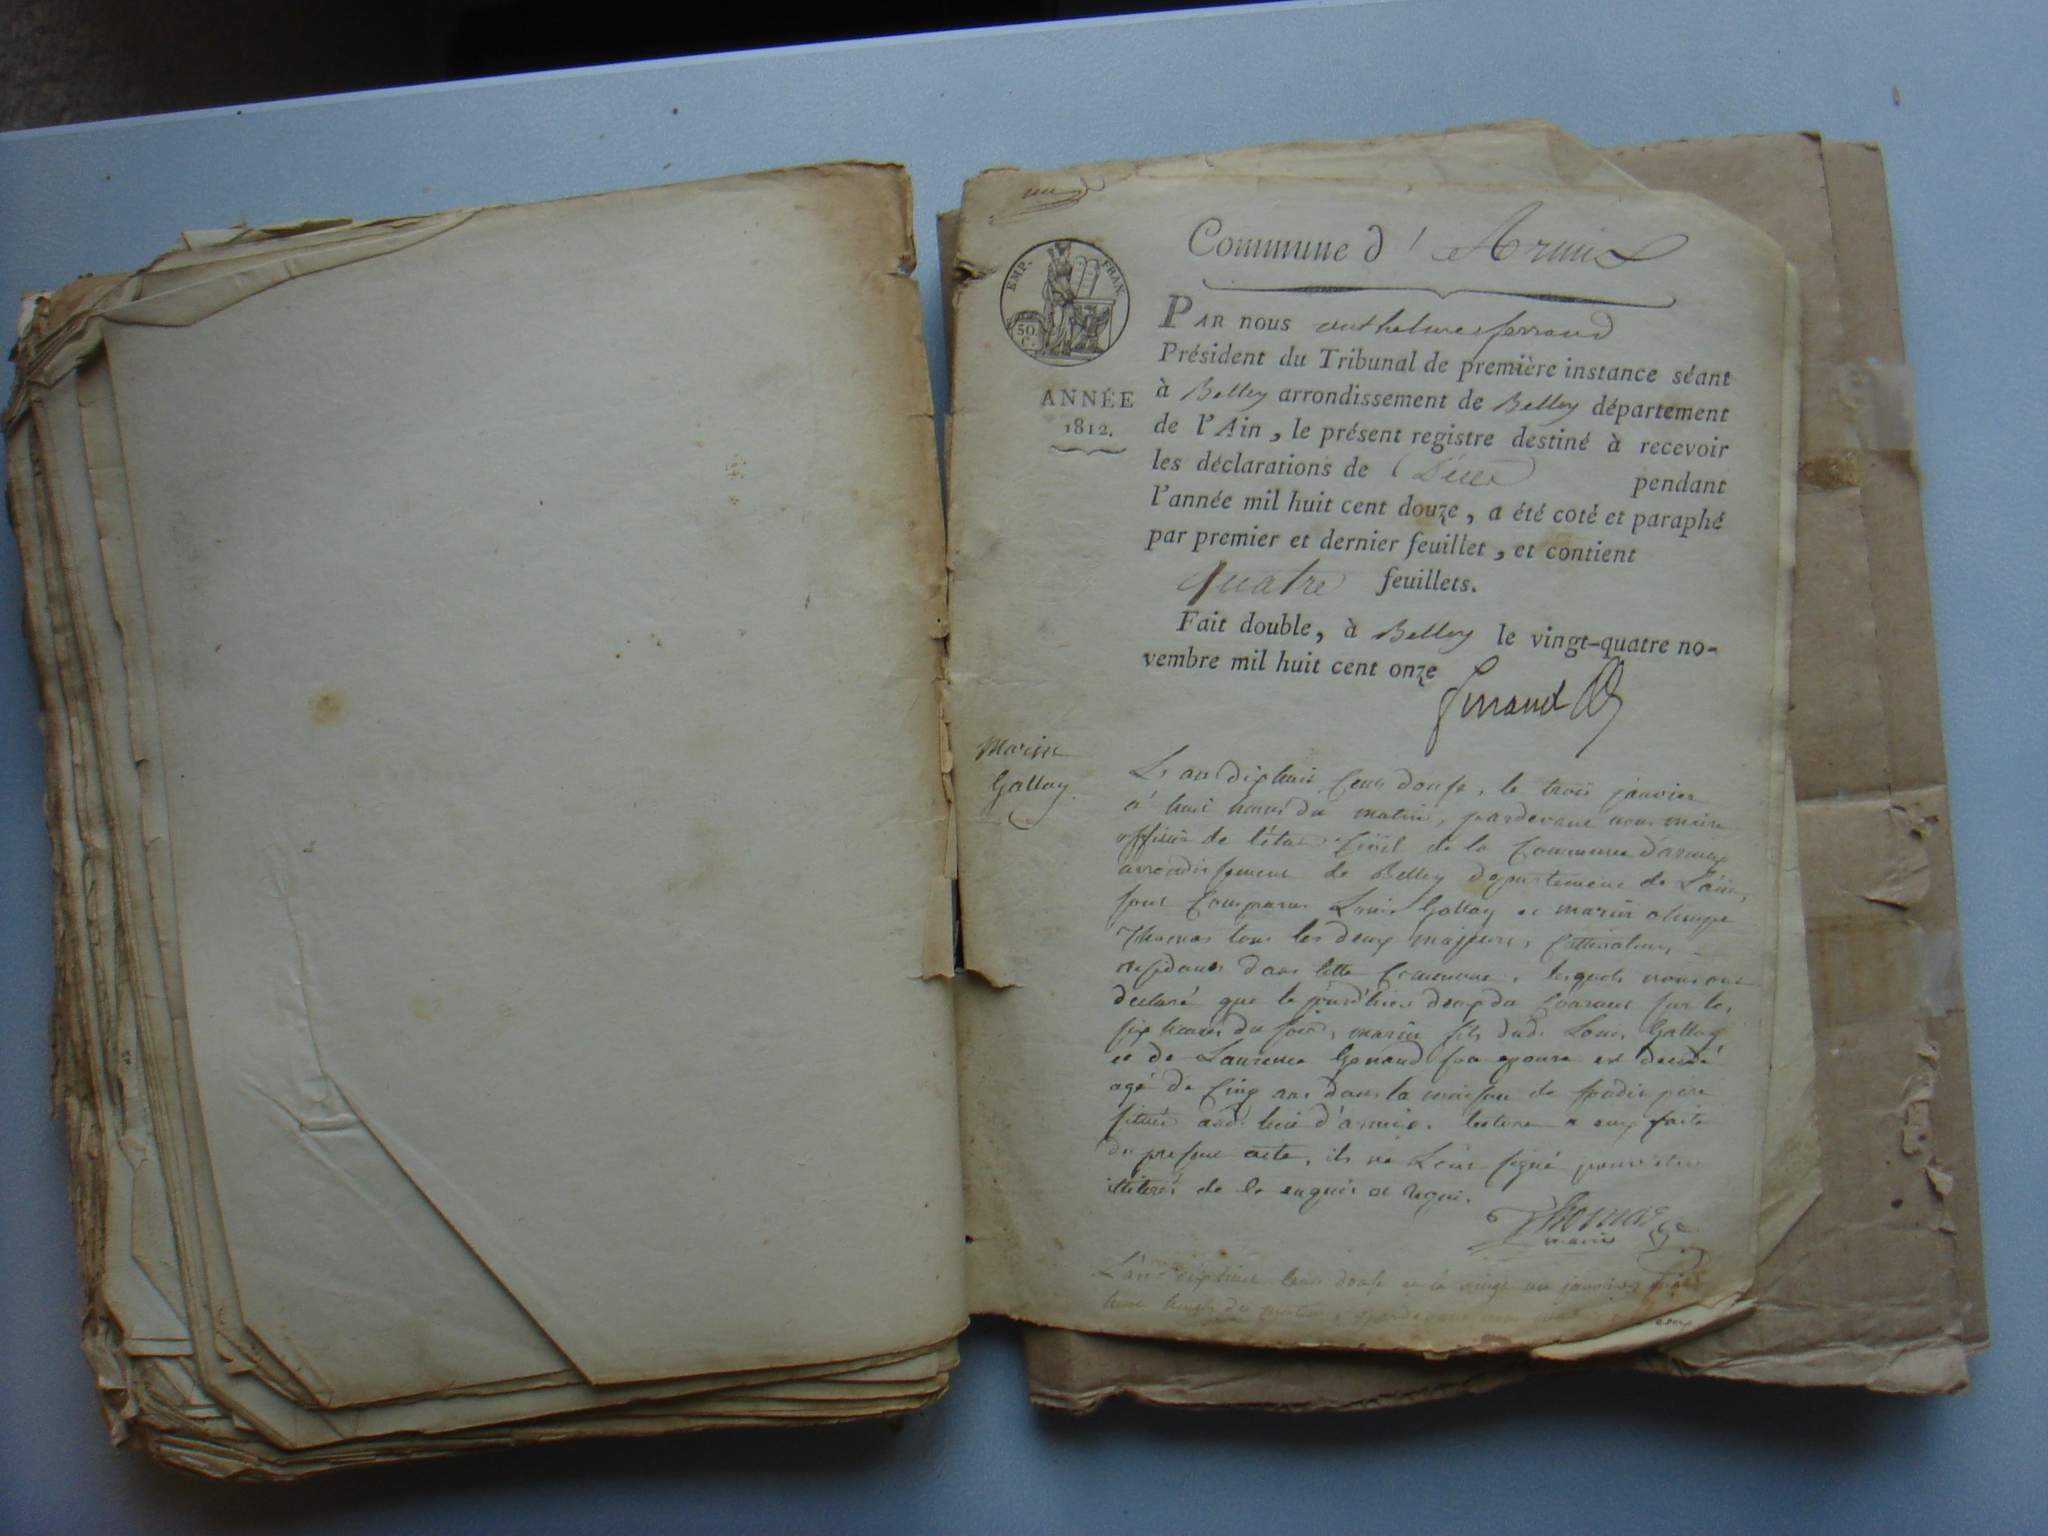 un
Commune d'Armix
EMP. FRAN.
50
C.
PAR nous anthelme ferrand
ANNÉE
1812.
Président du Tribunal de première instance séant
à Belley arrondissement de Belley département
de l'Ain, le présent registre destiné à recevoir
les déclarations de Décès pendant
l'année mil huit cent douze, a été coté et paraphé
par premier et dernier feuillet, et contient
quatre feuillets.
Fait double, à Belley le vingt-quatre no-
vembre mil huit cent onze
ferrand
Marin
Gallay
L'an dix huit cens douse, le trois janvier
à huit heures du matin, pardevant nous maire
officier de l'état civil de la Commune d'armix
arrondissement de Belley departement de L'ain,
sont comparus Louis Gallay et marin olimpe
Thomas tous les deux majeurs, cultivateurs
residants dans cette Commune, lesquels nous ont
declaré que le deux du courant sur les
six heures du soir, marin fils dud. Louis Gallay
et de Laurence son epouse est decedé
agé de cinq ans dans la maison de sondit pere
située aud. lieu d'armix. lecture a eux faite
du present acte, ils ne L'ont signé pour etre
illiterés de ce enquis et requis.
Thomas
maire
L'an dix huit cens douse et le vingt un janvier
huit heures du matin pardevant nous